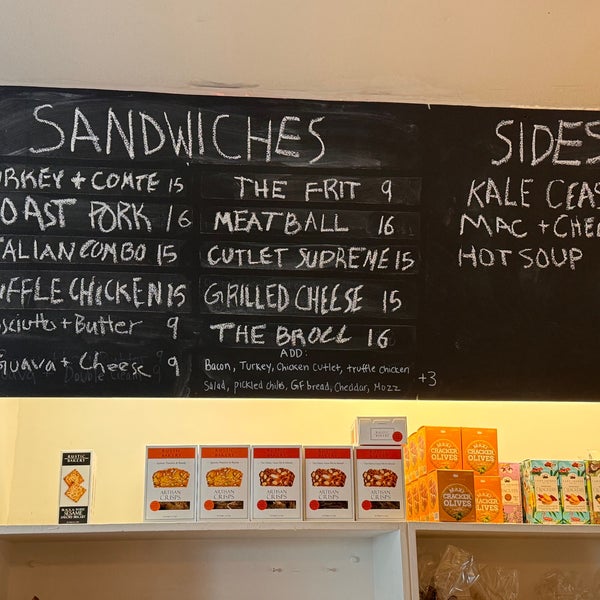 SANDWICHES
TURKEY + COMTE 15
ROAST PORK 16
ITALIAN COMBO 15
TRUFFLE CHICKEN 15
Prosciutto + Butter 9
Guava + Cheese 9
THE FRIT 9
MEATBALL 16
CUTLET SUPREME 15
GRILLED CHEESE 15
THE BROCC 16
ADD:
Bacon, Turkey, Chicken cutlet, truffle chicken
Salad, pickled chilis, GF bread, Cheddar, Mozz +3
SIDES
KALE CEAS
MAC + CHEE
HOT SOUP
RUSTIC
BAKERY
SESAME
ARTISAN
CRISPS
ARTISAN
CRISPS
ARTISAN
CRISPS
ARTISAN
CRISPS
ARTISAN
CRISPS
CRACKER
OLIVES
CRACKER
OLIVES
CRACKER
OLIVES
CRACKER
OLIVES